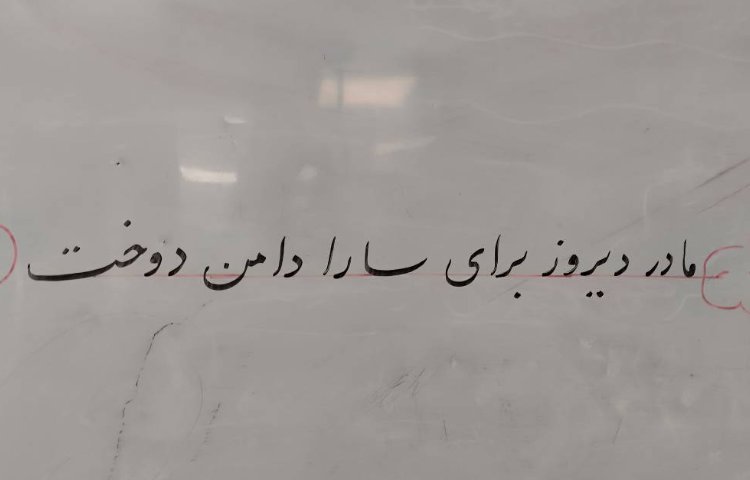 مادر دیروز برای سارا دامن دوخت